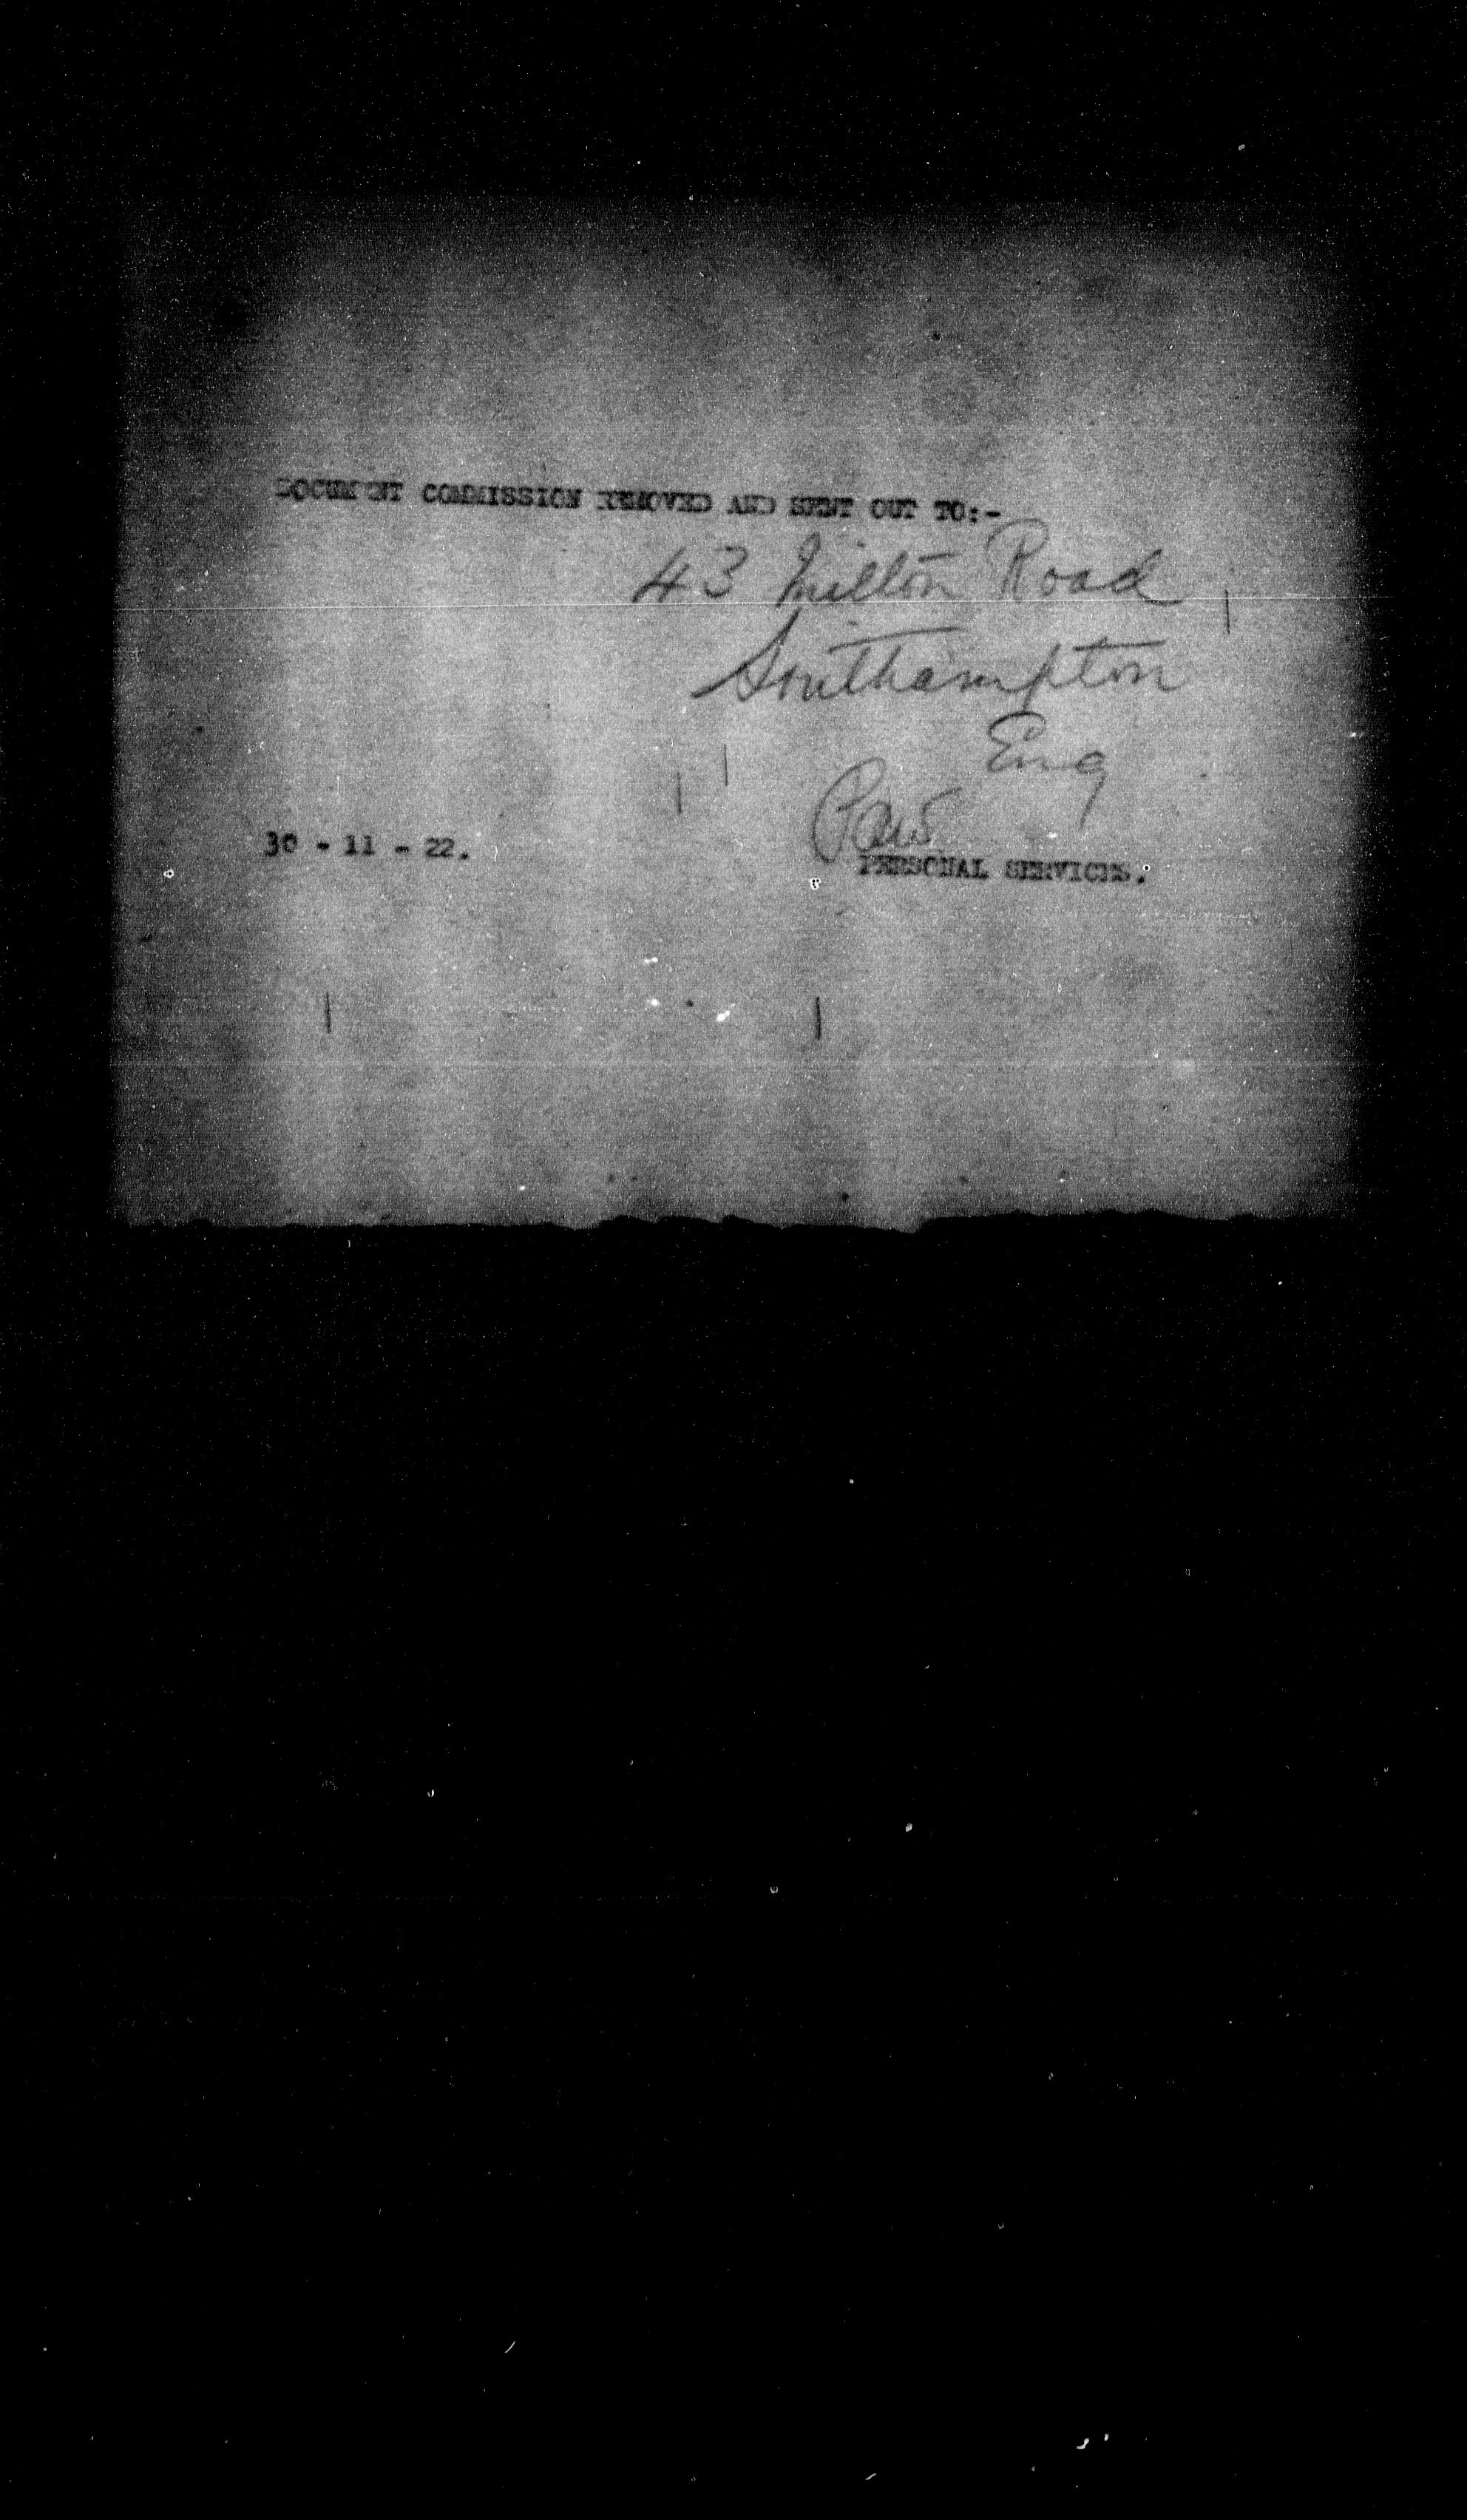 DOCUMENT COMMISSION REMOVED AND SENT OUT TO:-
43 Milton Road
Southampton
Eng
30 - 11 - 22.
PERSONAL SERVICES.